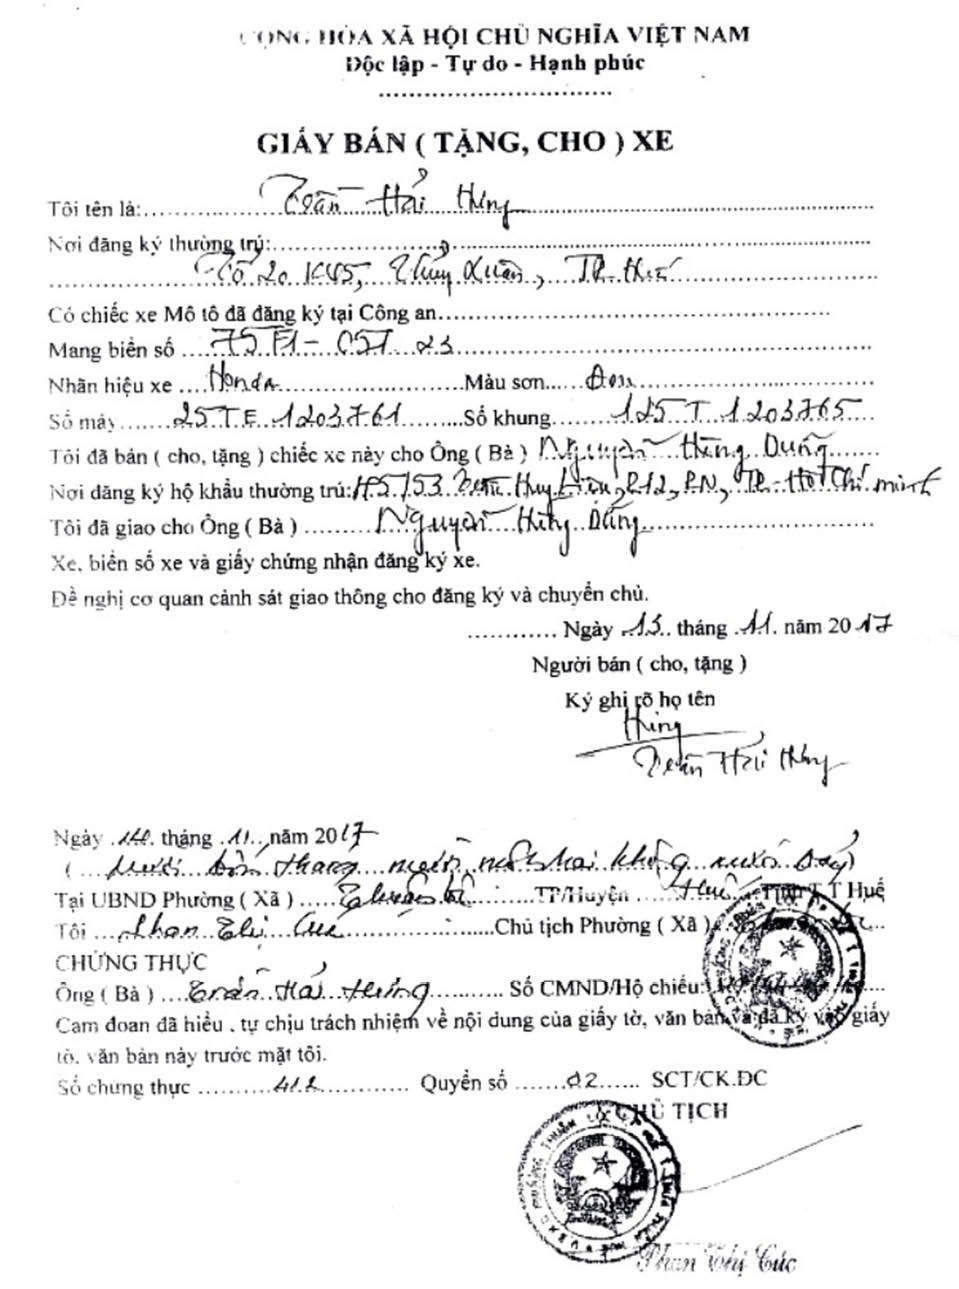 CỘNG HÒA XÃ HỘI CHỦ NGHĨA VIỆT NAM
Độc lập - Tự do - Hạnh phúc
GIẤY BÁN ( TẶNG, CHO ) XE
Tôi tên là: Trần Hải Hưng
Nơi đăng ký thường trú:
Tổ 20 KV5, Thủy Xuân, TP Huế
Có chiếc xe Mô tô đã đăng ký tại Công an
Mang biển số 75F1- 057 23
Nhãn hiệu xe Honda Màu sơn Đen
Số máy 25TE 1203761 Số khung 125T 1203765
Tôi đã bán ( cho, tặng ) chiếc xe này cho Ông ( Bà ) Nguyễn Hùng Dũng
Nơi đăng ký hộ khẩu thường trú: Trần Huy Liệu, P12, PN, TP- Hồ Chí minh
Tôi đã giao cho Ông ( Bà ) Nguyễn Hùng Dũng
Xe, biển số xe và giấy chứng nhận đăng ký xe.
Đề nghị cơ quan cảnh sát giao thông cho đăng ký và chuyển chủ.
Ngày 13 tháng 11 năm 2017
Người bán ( cho, tặng )
Ký ghi rõ họ tên
Hưng
Trần Hải Hưng
Ngày 14 tháng 11 năm 2017
( Mười bốn tháng mười một hai không mười bảy )
Tại UBND Phường ( Xã ) TP/Huyện Huế Tỉnh T.T Huế
Tôi Phan Thị Cúc Chủ tịch Phường ( Xã )
CHỨNG THỰC
Ông ( Bà ) Trần Hải Hưng Số CMND/Hộ chiếu:
Cam đoan đã hiểu , tự chịu trách nhiệm về nội dung của giấy tờ, văn bản và đã ký vào giấy
tờ, văn bản này trước mặt tôi.
Số chứng thực 412 Quyển số 02 SCT/CK.ĐC
CHỦ TỊCH
Phan Thị Cúc